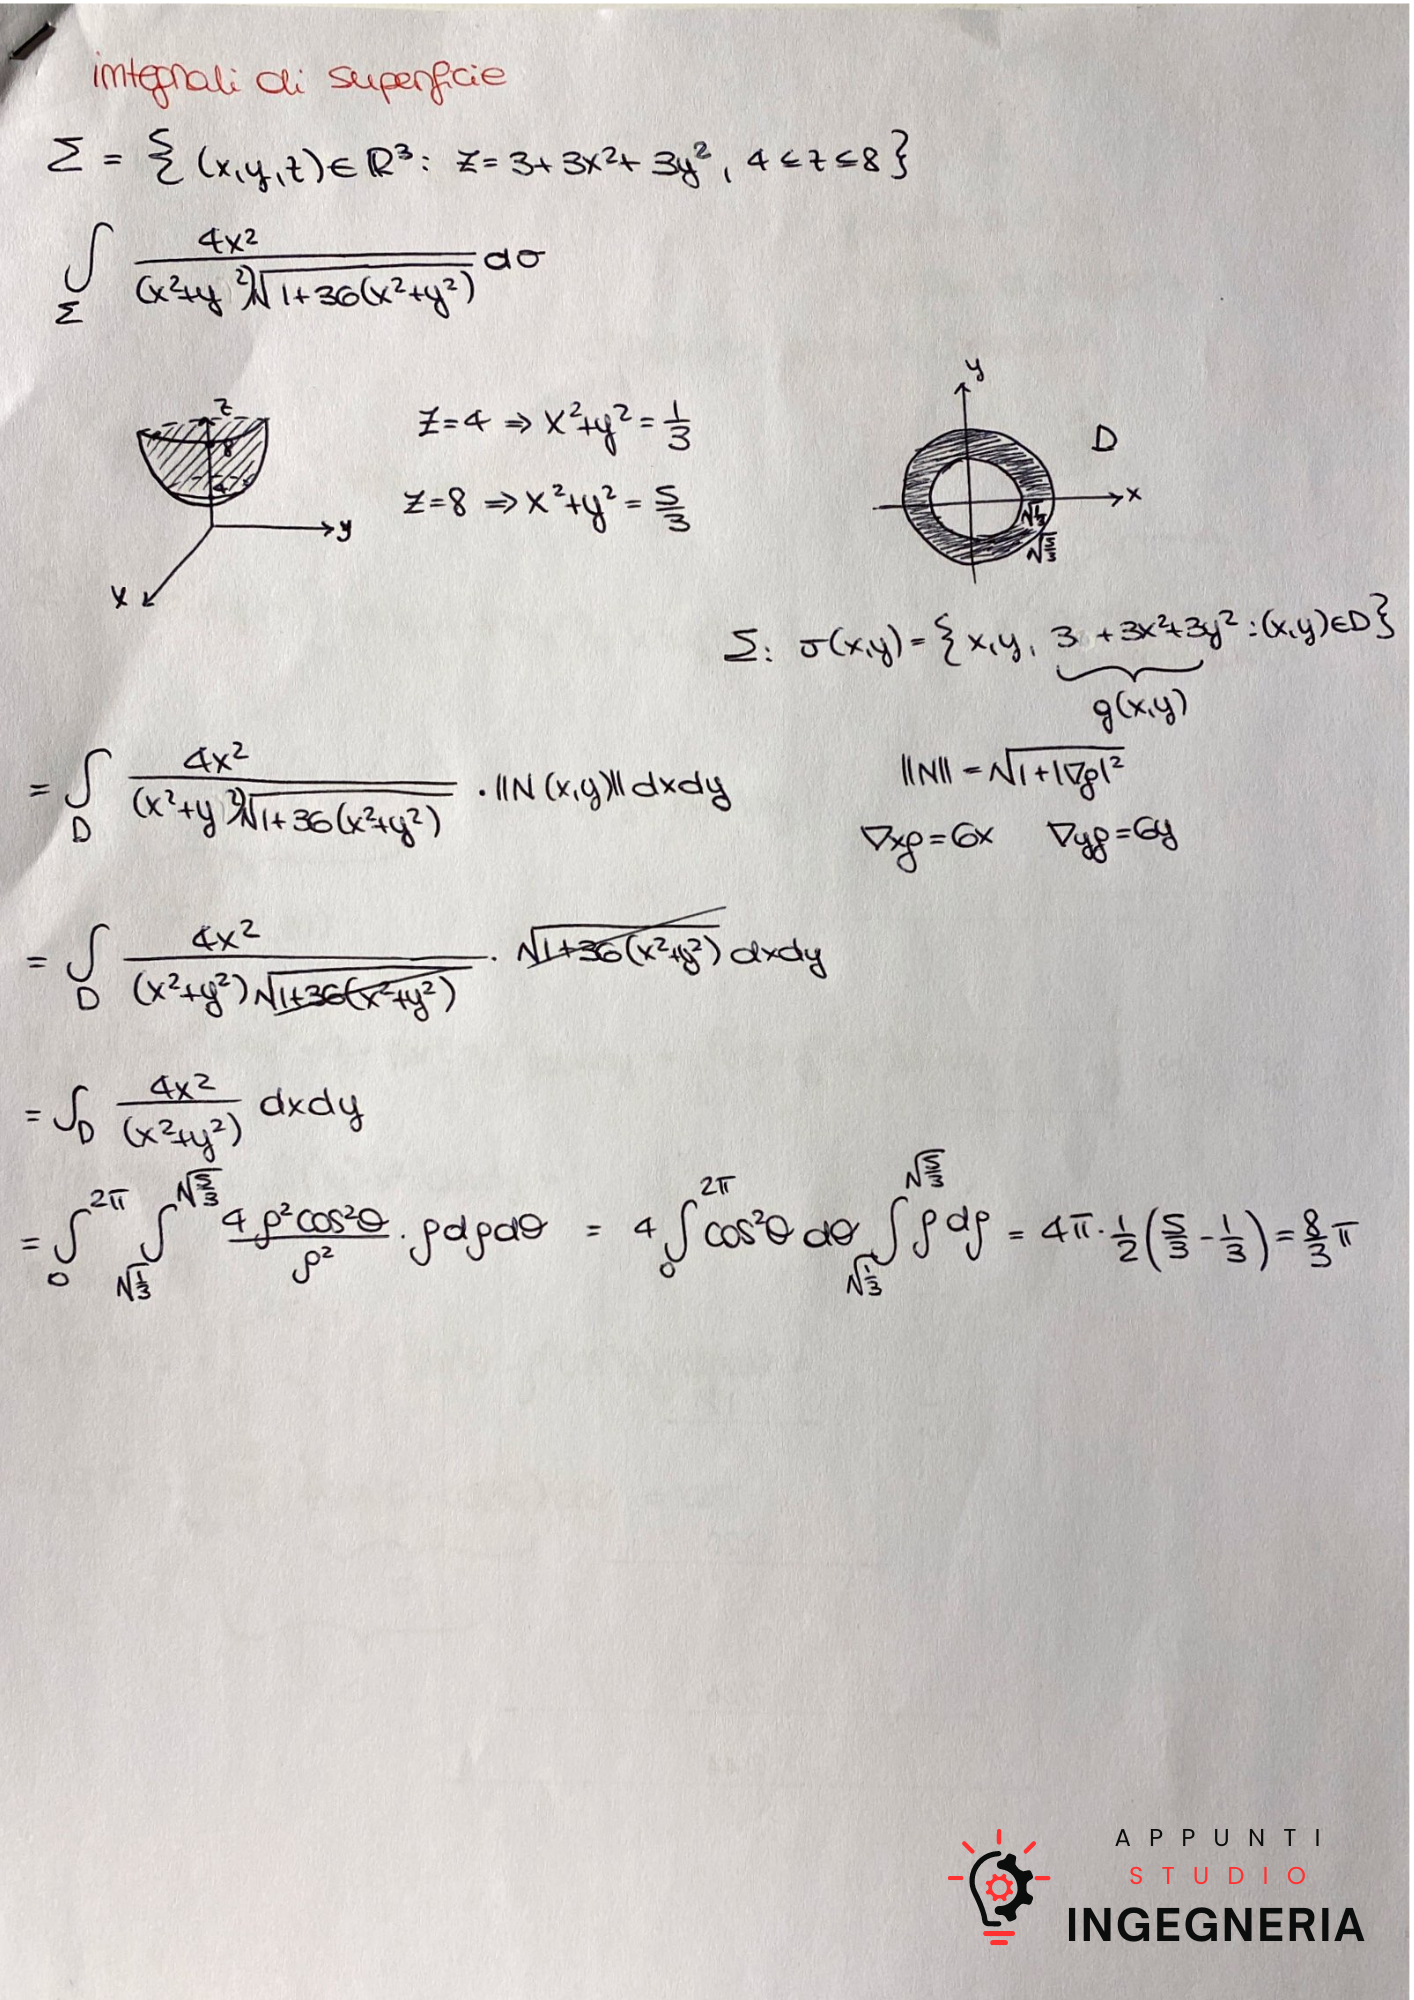 integrali di superficie
Σ = { (x,y,z) ∈ ℝ³: z = 3+3x²+3y², 4 ≤ z ≤ 8 }
∫_Σ 4x² / ((x²+y²)√(1+36(x²+y²))) dσ
z
8
4
y
x
z=4 ⇒ x²+y² = 1/3
z=8 ⇒ x²+y² = 5/3
y
D
x
√(1/3)
√(5/3)
Σ: σ(x,y) = { x,y, 3 + 3x²+3y² : (x,y)∈D }
g(x,y)
= ∫_D 4x² / ((x²+y²)√(1+36(x²+y²))) · ||N(x,y)|| dxdy
||N|| = √(1+|∇g|²)
∇xg = 6x ∇yg = 6y
= ∫_D 4x² / ((x²+y²)√(1+36(x²+y²))) · √(1+36(x²+y²)) dxdy
= ∫_D 4x² / (x²+y²) dxdy
= ∫_0^{2π} ∫_{√(1/3)}^{√(5/3)} 4ρ²cos²θ / ρ² · ρdρdθ = 4 ∫_0^{2π} cos²θ dθ ∫_{√(1/3)}^{√(5/3)} ρ dρ = 4π · 1/2 (5/3 - 1/3) = 8/3 π
APPUNTI
STUDIO
INGEGNERIA